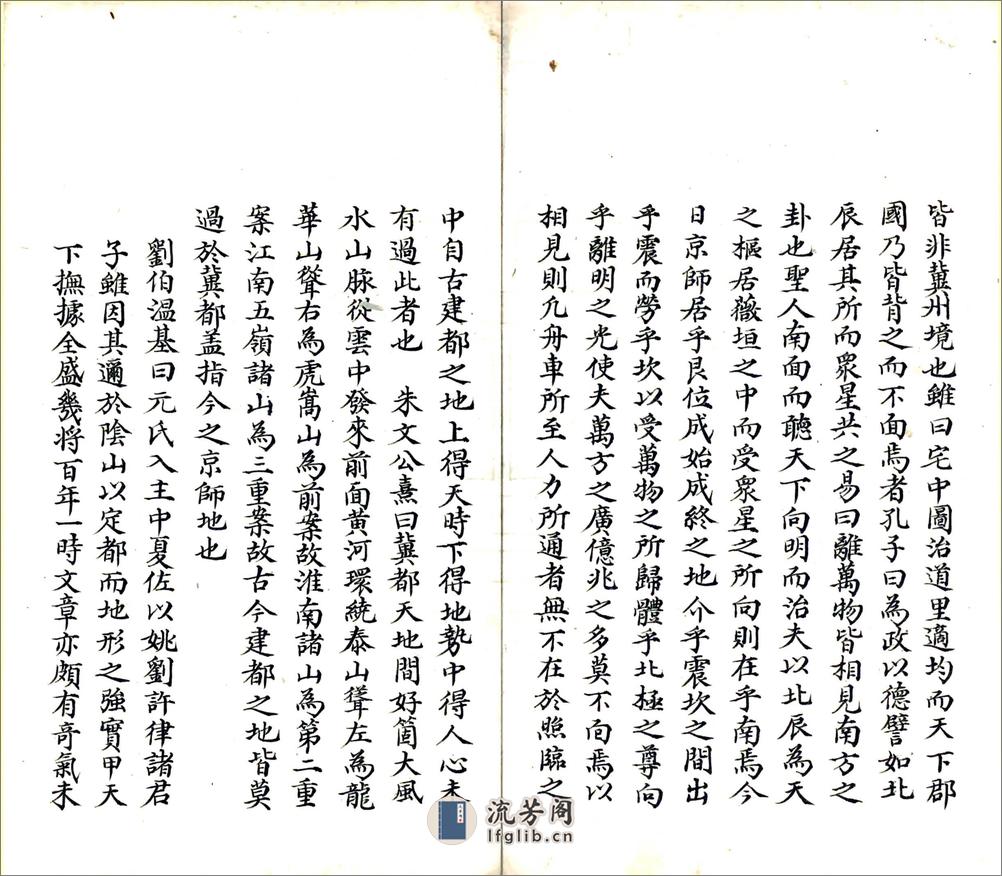 皆非冀州境也雖曰宅中圖治道里適均而天下郡
國乃皆背之而不面焉者孔子曰為政以德譬如北
辰居其所而眾星共之易曰離萬物皆相見南方之
卦也聖人南面而聽天下向明而治夫以北辰為天
之樞居薇垣之中而受眾星之所向則在乎南焉今
日京師居乎艮位成始成終之地介乎震坎之間出
乎震而勞乎坎以受萬物之所歸體乎北極之尊向
乎離明之光使夫萬方之廣億兆之多莫不面焉以
相見則凢舟車所至人力所通者無不在於照臨之
中自古建都之地上得天時下得地勢中得人心未
有過此者也　朱文公熹曰冀都天地間好箇大風
水山脉從雲中發來前面黃河環繞泰山聳左為龍
華山聳右為虎嵩山為前案故淮南諸山為第二重
案江南五嶺諸山為三重案故古今建都之地皆莫
過於冀都盖指今之京師地也
劉伯溫基曰元氏入主中夏佐以姚劉許律諸君
子雖因其邇於陰山以定都而地形之強實甲天
下撫據全盛幾将百年一時文章亦頗有奇氣未
流芳阁
lfglib.cn